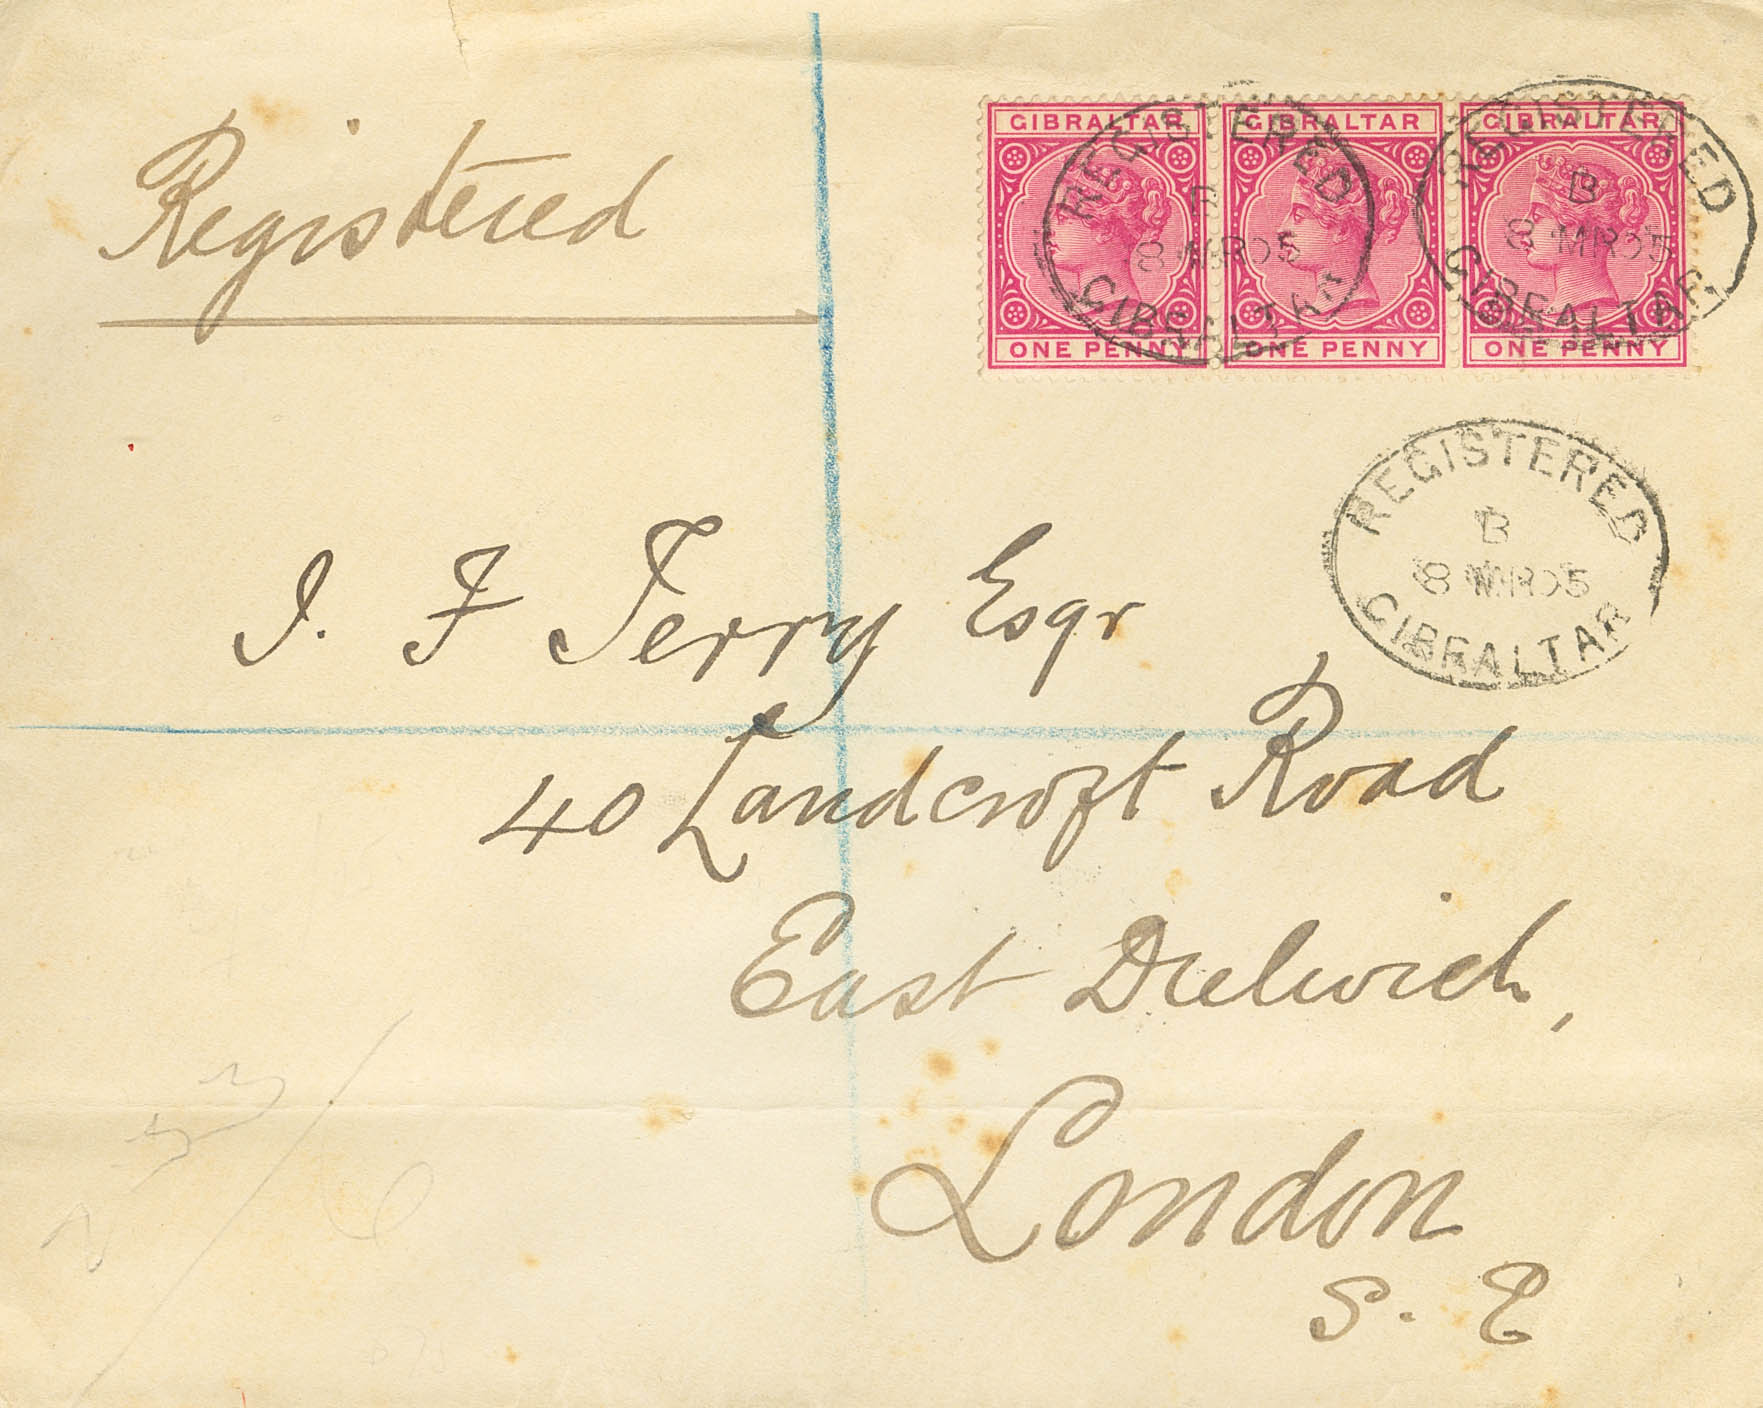 Registered
GIBRALTAR GIBRALTAR GIBRALTAR
ONE PENNY ONE PENNY ONE PENNY
REGISTERED
8 MR 05
GIBRALTAR
REGISTERED
B
8 MR 05
GIBRALTAR
REGISTERED
B
8 MR 05
GIBRALTAR
J. F Terry Esqr
40 Landcroft Road
East Dulwich,
London
S. E